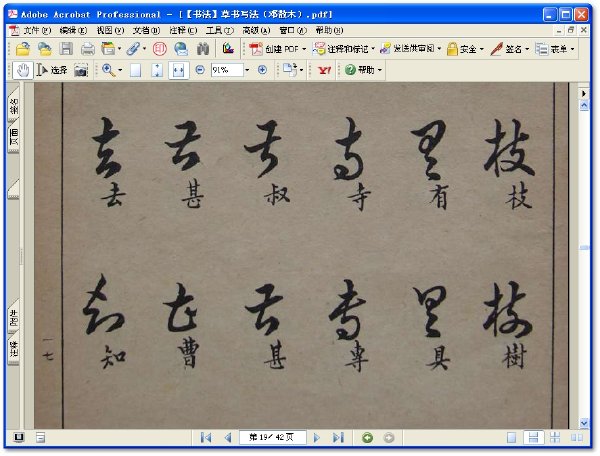 Adobe Acrobat Professional - [【书法】草书写法（邓散木）.pdf]
文件(F) 编辑(E) 视图(V) 文档(D) 注释(C) 工具(T) 高级(A) 窗口(W) 帮助(H)
创建 PDF 注释和标记 发送供审阅 安全 签名 表单
选择 91% Y! 帮助
书签
页面
枝 有 寺 叔 甚 去
樹 具 專 甚 曹 知
一七
附件
注释
第 19 / 42 页